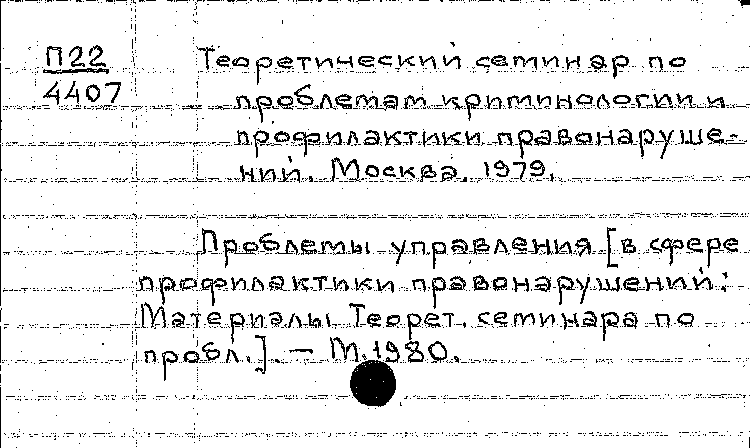 П22
4407
Теоретический семинар по
проблемам криминологии и
профилактики правонаруше-
ний. Москва. 1979.
Проблемы управления [в сфере
профилактики правонарушений:
Материалы Теорет. семинара по
пробл.]. — М.1980.